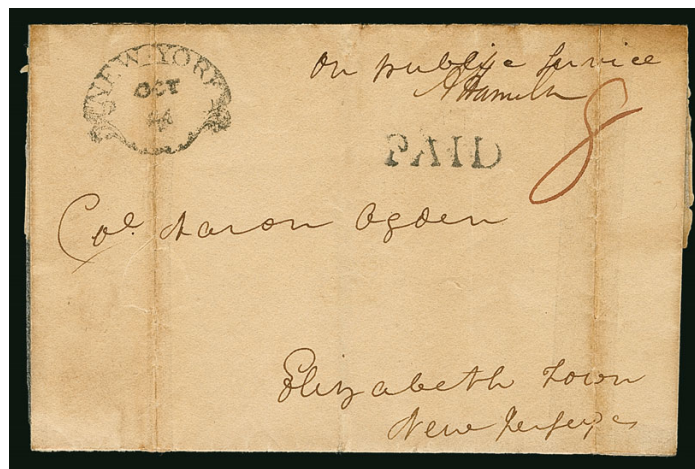 NEW-YORK
OCT
on public Service
AHamilton
8
PAID
Col. Aaron Ogden
Elizabeth Town
New Jersey